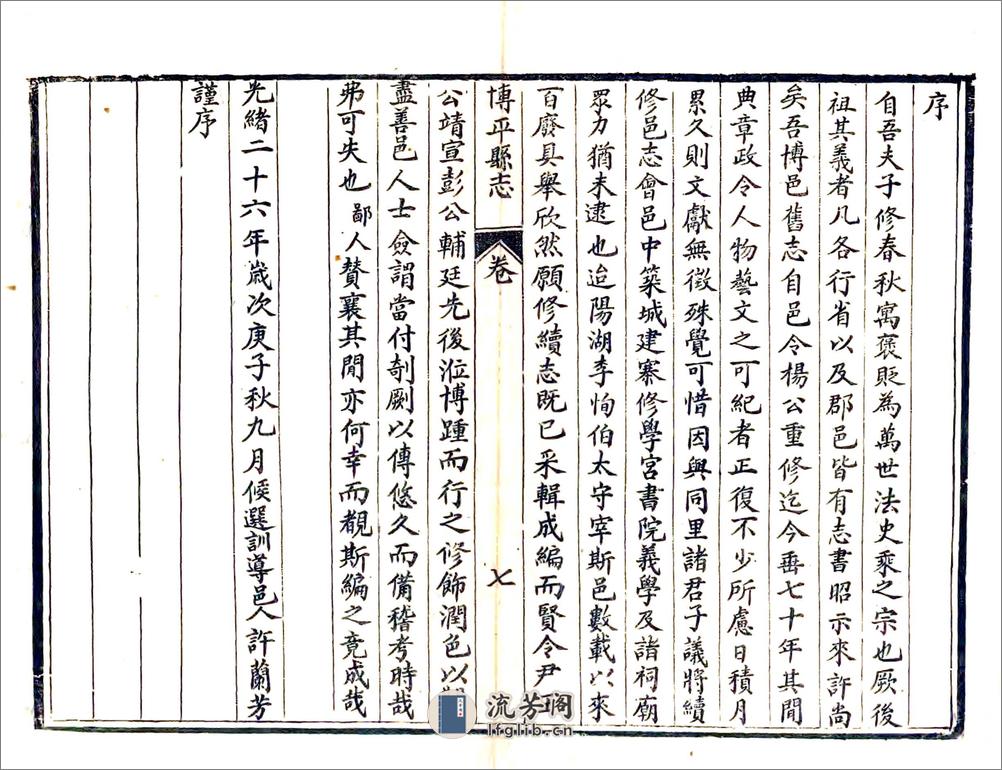 序
自吾夫子修春秋寓褒貶為萬世法史乘之宗也厥後
祖其義者凡各行省以及郡邑皆有志書昭示來許尚
矣吾博邑舊志自邑令楊公重修迄今垂七十年其間
典章政令人物藝文之可紀者正復不少所慮日積月
累久則文獻無徵殊覺可惜因與同里諸君子議將續
修邑志會邑中築城建寨修學宮書院義學及諸祠廟
眾力猶未逮也迨陽湖李恂伯太守宰斯邑數載以來
百廢具舉欣然願修續志既已采輯成編而賢令尹
博平縣志 卷 七
公靖宣彭公輔廷先後涖博踵而行之修飾潤色以
盡善邑人士僉謂當付剞劂以傳悠久而備稽考時哉
弗可失也鄙人贊襄其閒亦何幸而覩斯編之竟成哉
光緒二十六年歲次庚子秋九月候選訓導邑人許蘭芳
謹序
流芳閣
lfglib.cn